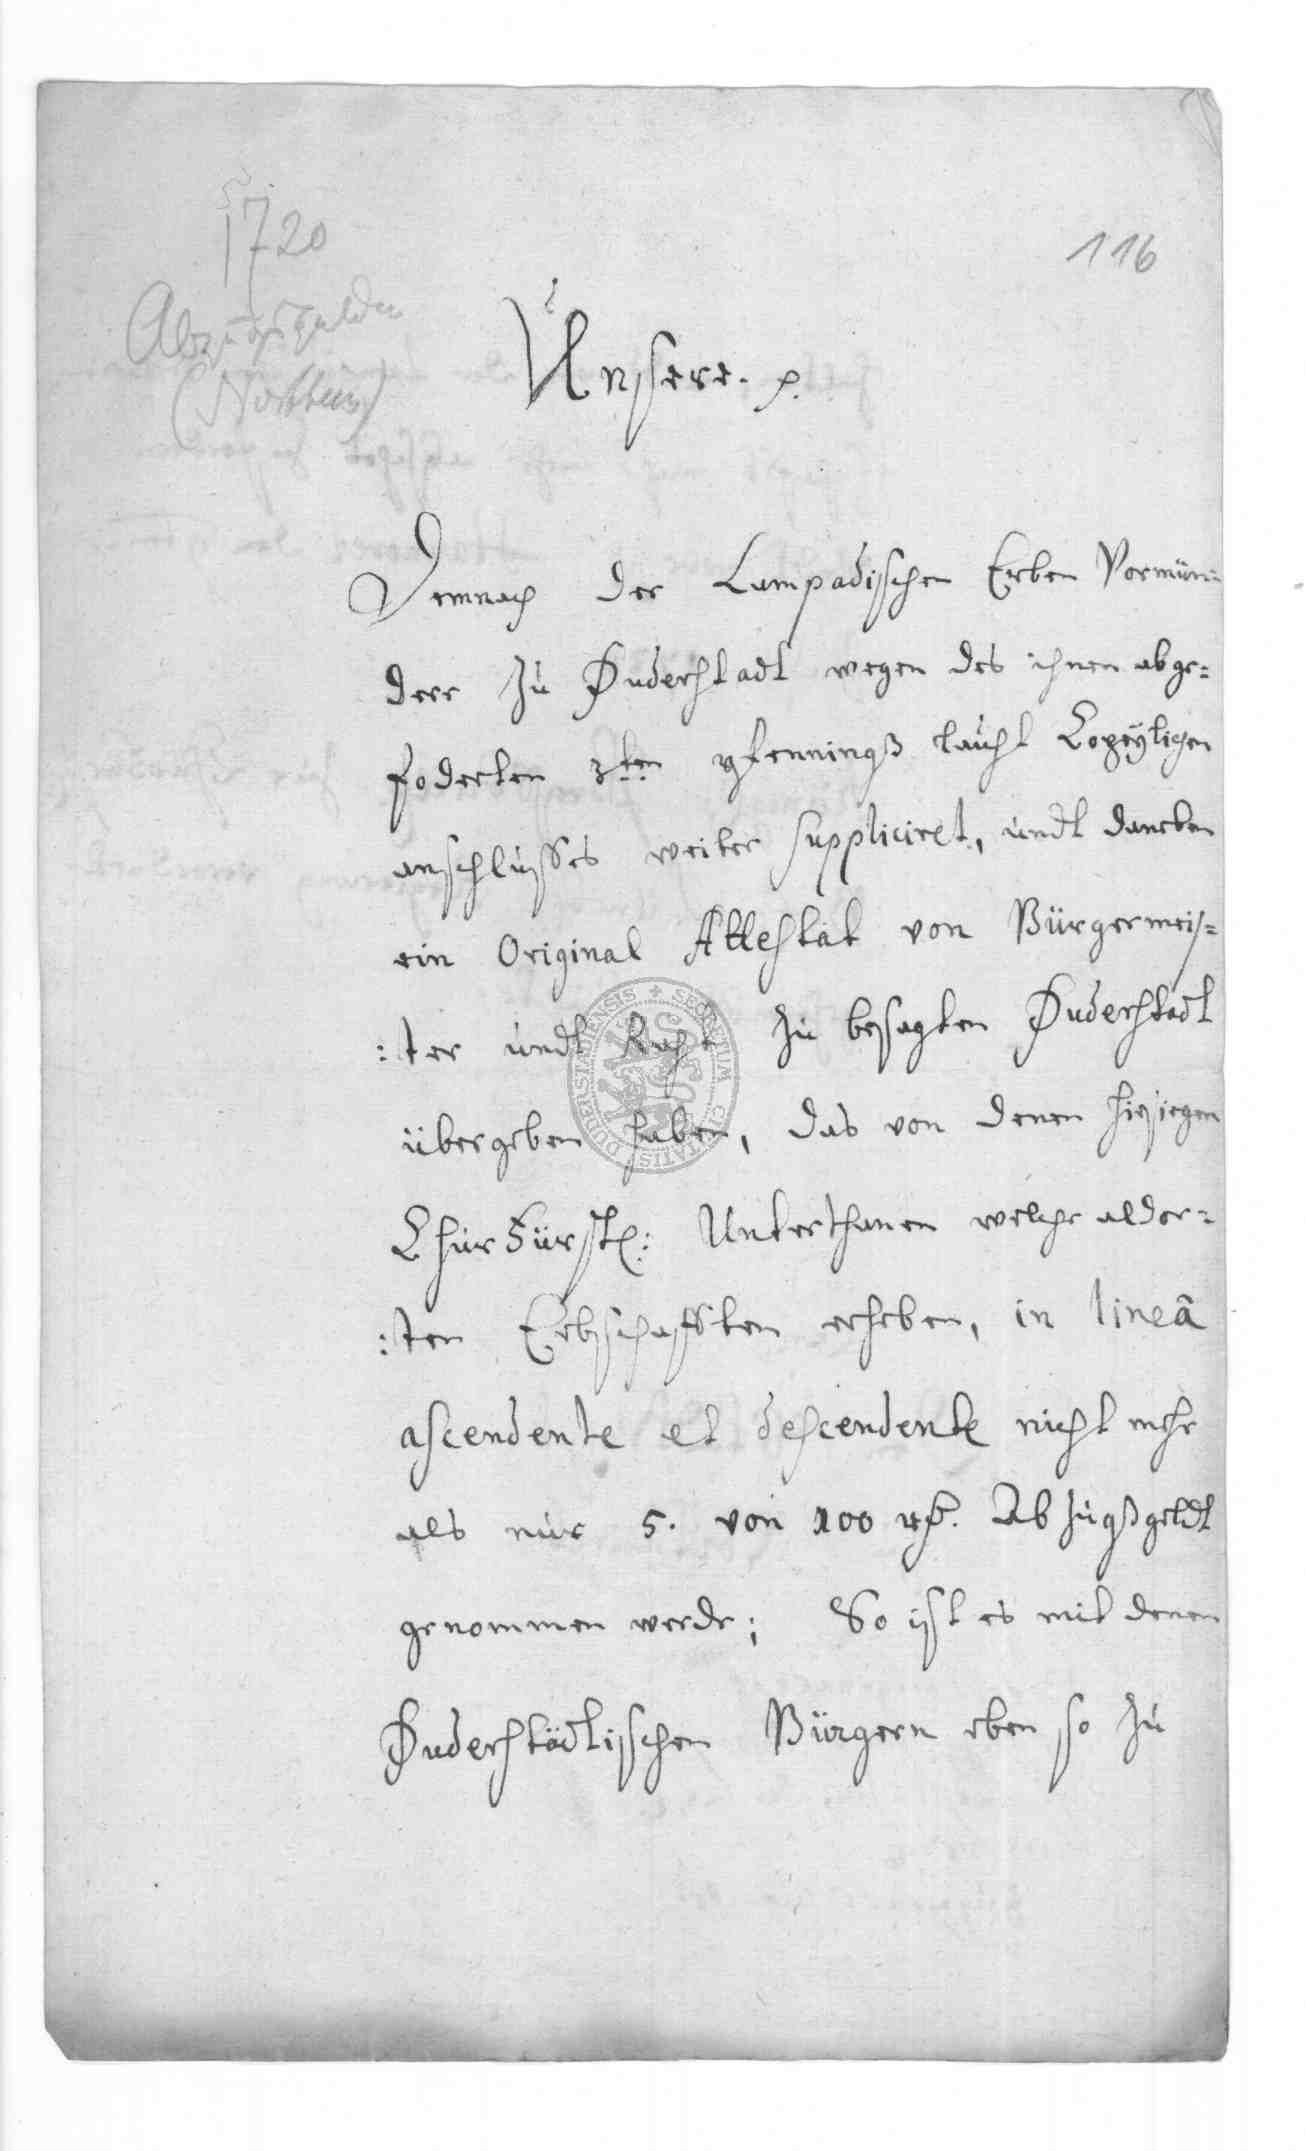 1720
116
Abzugsgelder
(Northeim)
Unsere. p.
Demnach der Lampadischen Erben Vormün=
dere zu Duderstadt wegen des ihnen abge=
foderten 3ten pfennings lauht Copeylichen
anschlusses weiter suppliciret, undt daneben
ein Original Attestat von Bürgermeis=
:ter undt Raht zu besagten Duderstadt
übergeben haben, das von denen hiesiegen
ChurFürstl: Unterthanen welche aldor=
:ten Erbschafften erheben, in lineâ
ascendente et descendente nicht mehr
als nur 5. von 100 rthl. Abzugßgeldt
genommen werde; So ist es mit denen
Duderstädtischen Bürgern eben so zu
SECRETUM CIVITATIS DUDERSTADENSIS